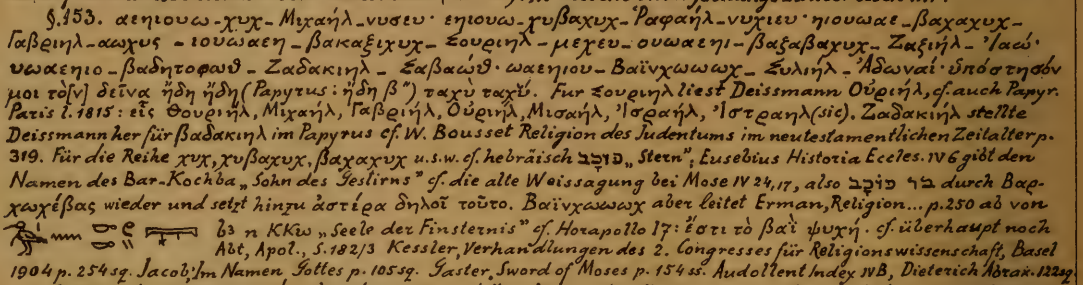 §.153. αεηιουω-χυχ-Μιχαήλ-νυσευ· εηιουω-χυβαχυχ-Ραφαήλ-νυχιευ· ηιουωαε-βαχαχυχ-
Γαβριηλ-αωχυς-ιουωαεη-βακαξιχυχ-Σουριηλ-μεχευ-ουωαεηι-βαξαβαχυχ-Ζαξιήλ-Ἰαώ·
υωαεηιο-βαδητοφωθ-Ζαδακιηλ-Σαβαώθ· ωαεηιου-Βαϊνχωωωχ-Συλιήλ-Ἀδωναί· ὑπόστησόν
μοι τὸ[ν] δεῖνα ἤδη ἤδη (Papyrus: ἤδη β") ταχὺ ταχύ. Für Σουριηλ liest Deissmann Οὐριήλ, cf. auch Papyr.
Paris l. 1815: εἷς Θουριήλ, Μιχαήλ, Γαβριήλ, Οὐριήλ, Μισαήλ, Ἰσραήλ, Ἰστραηλ (sic). Ζαδακιήλ stellte
Deissmann her für βαδακιηλ im Papyrus cf. W. Bousset Religion des Judentums im neutestamentlichen Zeitalter p.
319. Für die Reihe χυχ, χυβαχυχ, βαχαχυχ u.s.w. cf. hebräisch כּוֹכָב „Stern", Eusebius Historia Eccles. IV 6 gibt den
Namen des Bar-Kochba „Sohn des Gestirns" cf. die alte Weissagung bei Mose IV 24,17, also בר כּוֹכָב durch Βαρ-
χωχέβας wieder und setzt hinzu ἀστέρα δηλοῖ τοῦτο. Βαϊνχωωωχ aber leitet Erman, Religion... p. 250 ab von
b3 n KKiw „Seele der Finsternis" cf. Horapollo I 7: ἔστι τὸ βαῒ ψυχή. cf. überhaupt noch
Abt, Apol., S. 182/3 Kessler, Verhandlungen des 2. Congresses für Religionswissenschaft, Basel
1904 p. 254 sq. Jacob, Im Namen Gottes p. 105 sq. Gaster, Sword of Moses p. 154 ss. Audollent Index IV B, Dieterich Abrax. 122 sq.